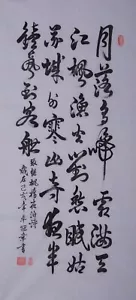 月落烏啼霜滿天
江楓漁火對愁眠姑
蘇城外寒山寺夜半
鐘聲到客船
張繼楓橋夜泊詩